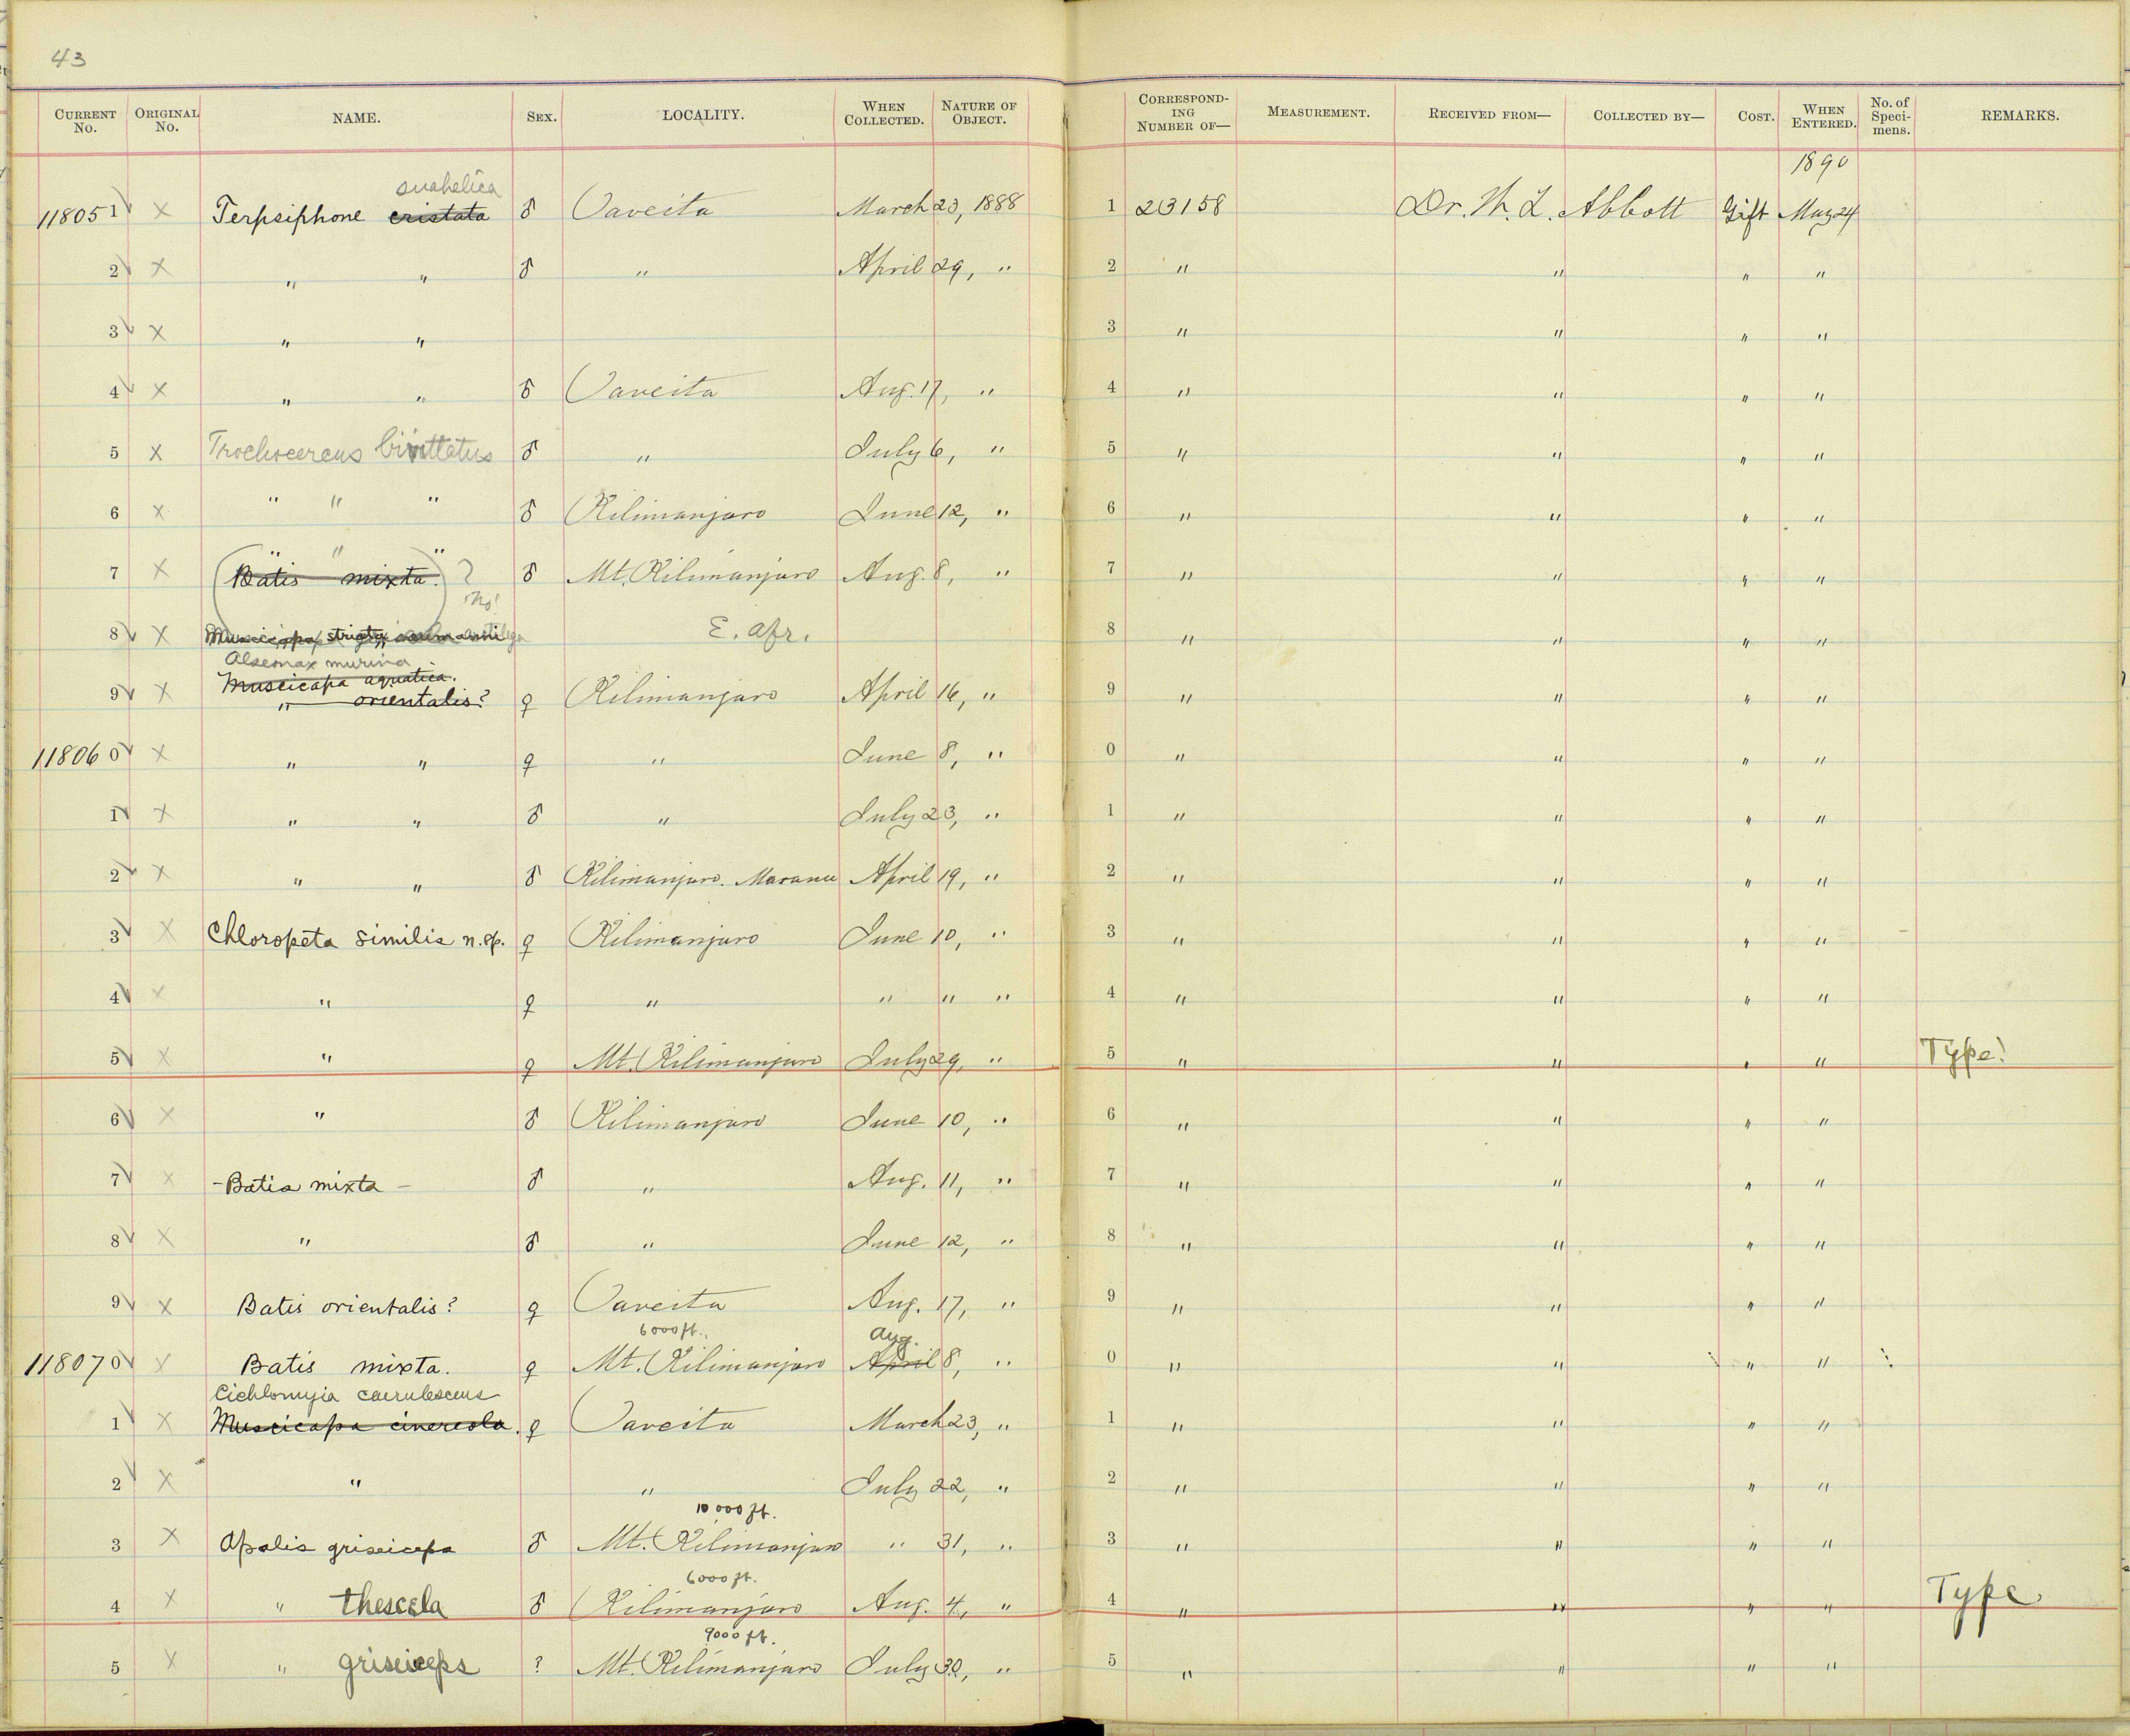 43
CURRENT No. ORIGINAL No. NAME. SEX. LOCALITY. WHEN COLLECTED. NATURE OF OBJECT. CORRESPONDING NUMBER OF— MEASUREMENT. RECEIVED FROM— COLLECTED BY— COST. WHEN ENTERED. No. of Specimens. REMARKS.
1890
suahelica
118051 X Terpsiphone cristata ♂ Taveita March 23, 1888 1 23158 Dr. W. L. Abbott Gift May 24
2 X " " ♂ " April 29, " 2 " " " "
3 X " " 3 " " " "
4 X " " ♂ Taveita Aug. 17, " 4 " " " "
5 X Trochocercus bivittatus ♂ " July 6, " 5 " " " "
6 X " " " ♂ Kilimanjaro June 12, " 6 " " " "
" " "
7 X Batis mixta. ? ♂ Mt. Kilimanjaro Aug. 8, " 7 " " " "
No!
8 X Muscicapa E. Afr. 8 " " " "
Alseonax murina
Muscicapa aquatica.
9 X " orientalis? ♀ Kilimanjaro April 16, " 9 " " " "
118060 X " " ♀ " June 8, " 0 " " " "
1 X " " ♂ " July 23, " 1 " " " "
2 X " " ♂ Kilimanjaro. Maranu April 19, " 2 " " " "
3 X Chloropeta similis n. sp. ♀ Kilimanjaro June 10, " 3 " " " "
4 X " ♀ " " " " 4 " " " "
5 X " ♀ Mt. Kilimanjaro July 29, " 5 " " " " Type!
6 X " ♂ Kilimanjaro June 10, " 6 " " " "
7 X - Batis mixta - ♂ " Aug. 11, " 7 " " " "
8 X " ♂ " June 12, " 8 " " " "
9 X Batis orientalis? ♀ Taveita Aug. 17, " 9 " " " "
6000 ft. Aug.
118070 X Batis mixta. ♀ Mt. Kilimanjaro April 8, " 0 " " " "
Cichlomyia caerulescens
1 X Muscicapa cinereola. ♀ Taveita March 23, " 1 " " " "
2 X " " July 22, " 2 " " " "
10 000 ft.
3 X Apalis griseiceps ♂ Mt. Kilimanjaro " 31, " 3 " " " "
6000 ft.
4 X " thescela ♂ Kilimanjaro Aug. 4, " 4 " " " " Type
9000 ft.
5 X " griseiceps ? Mt. Kilimanjaro July 30, " 5 " " " "